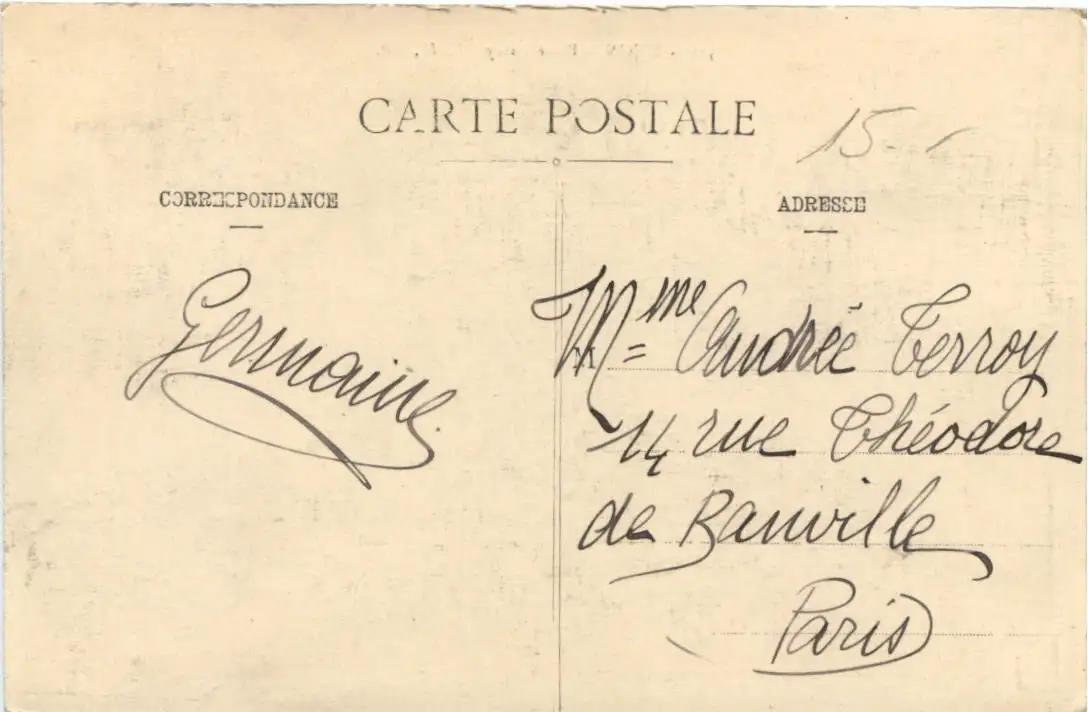 CARTE POSTALE
15-
CORRESPONDANCE
ADRESSE
Germaine.
Mme Andrée Terroy
14 rue Théodore
de Banville
Paris